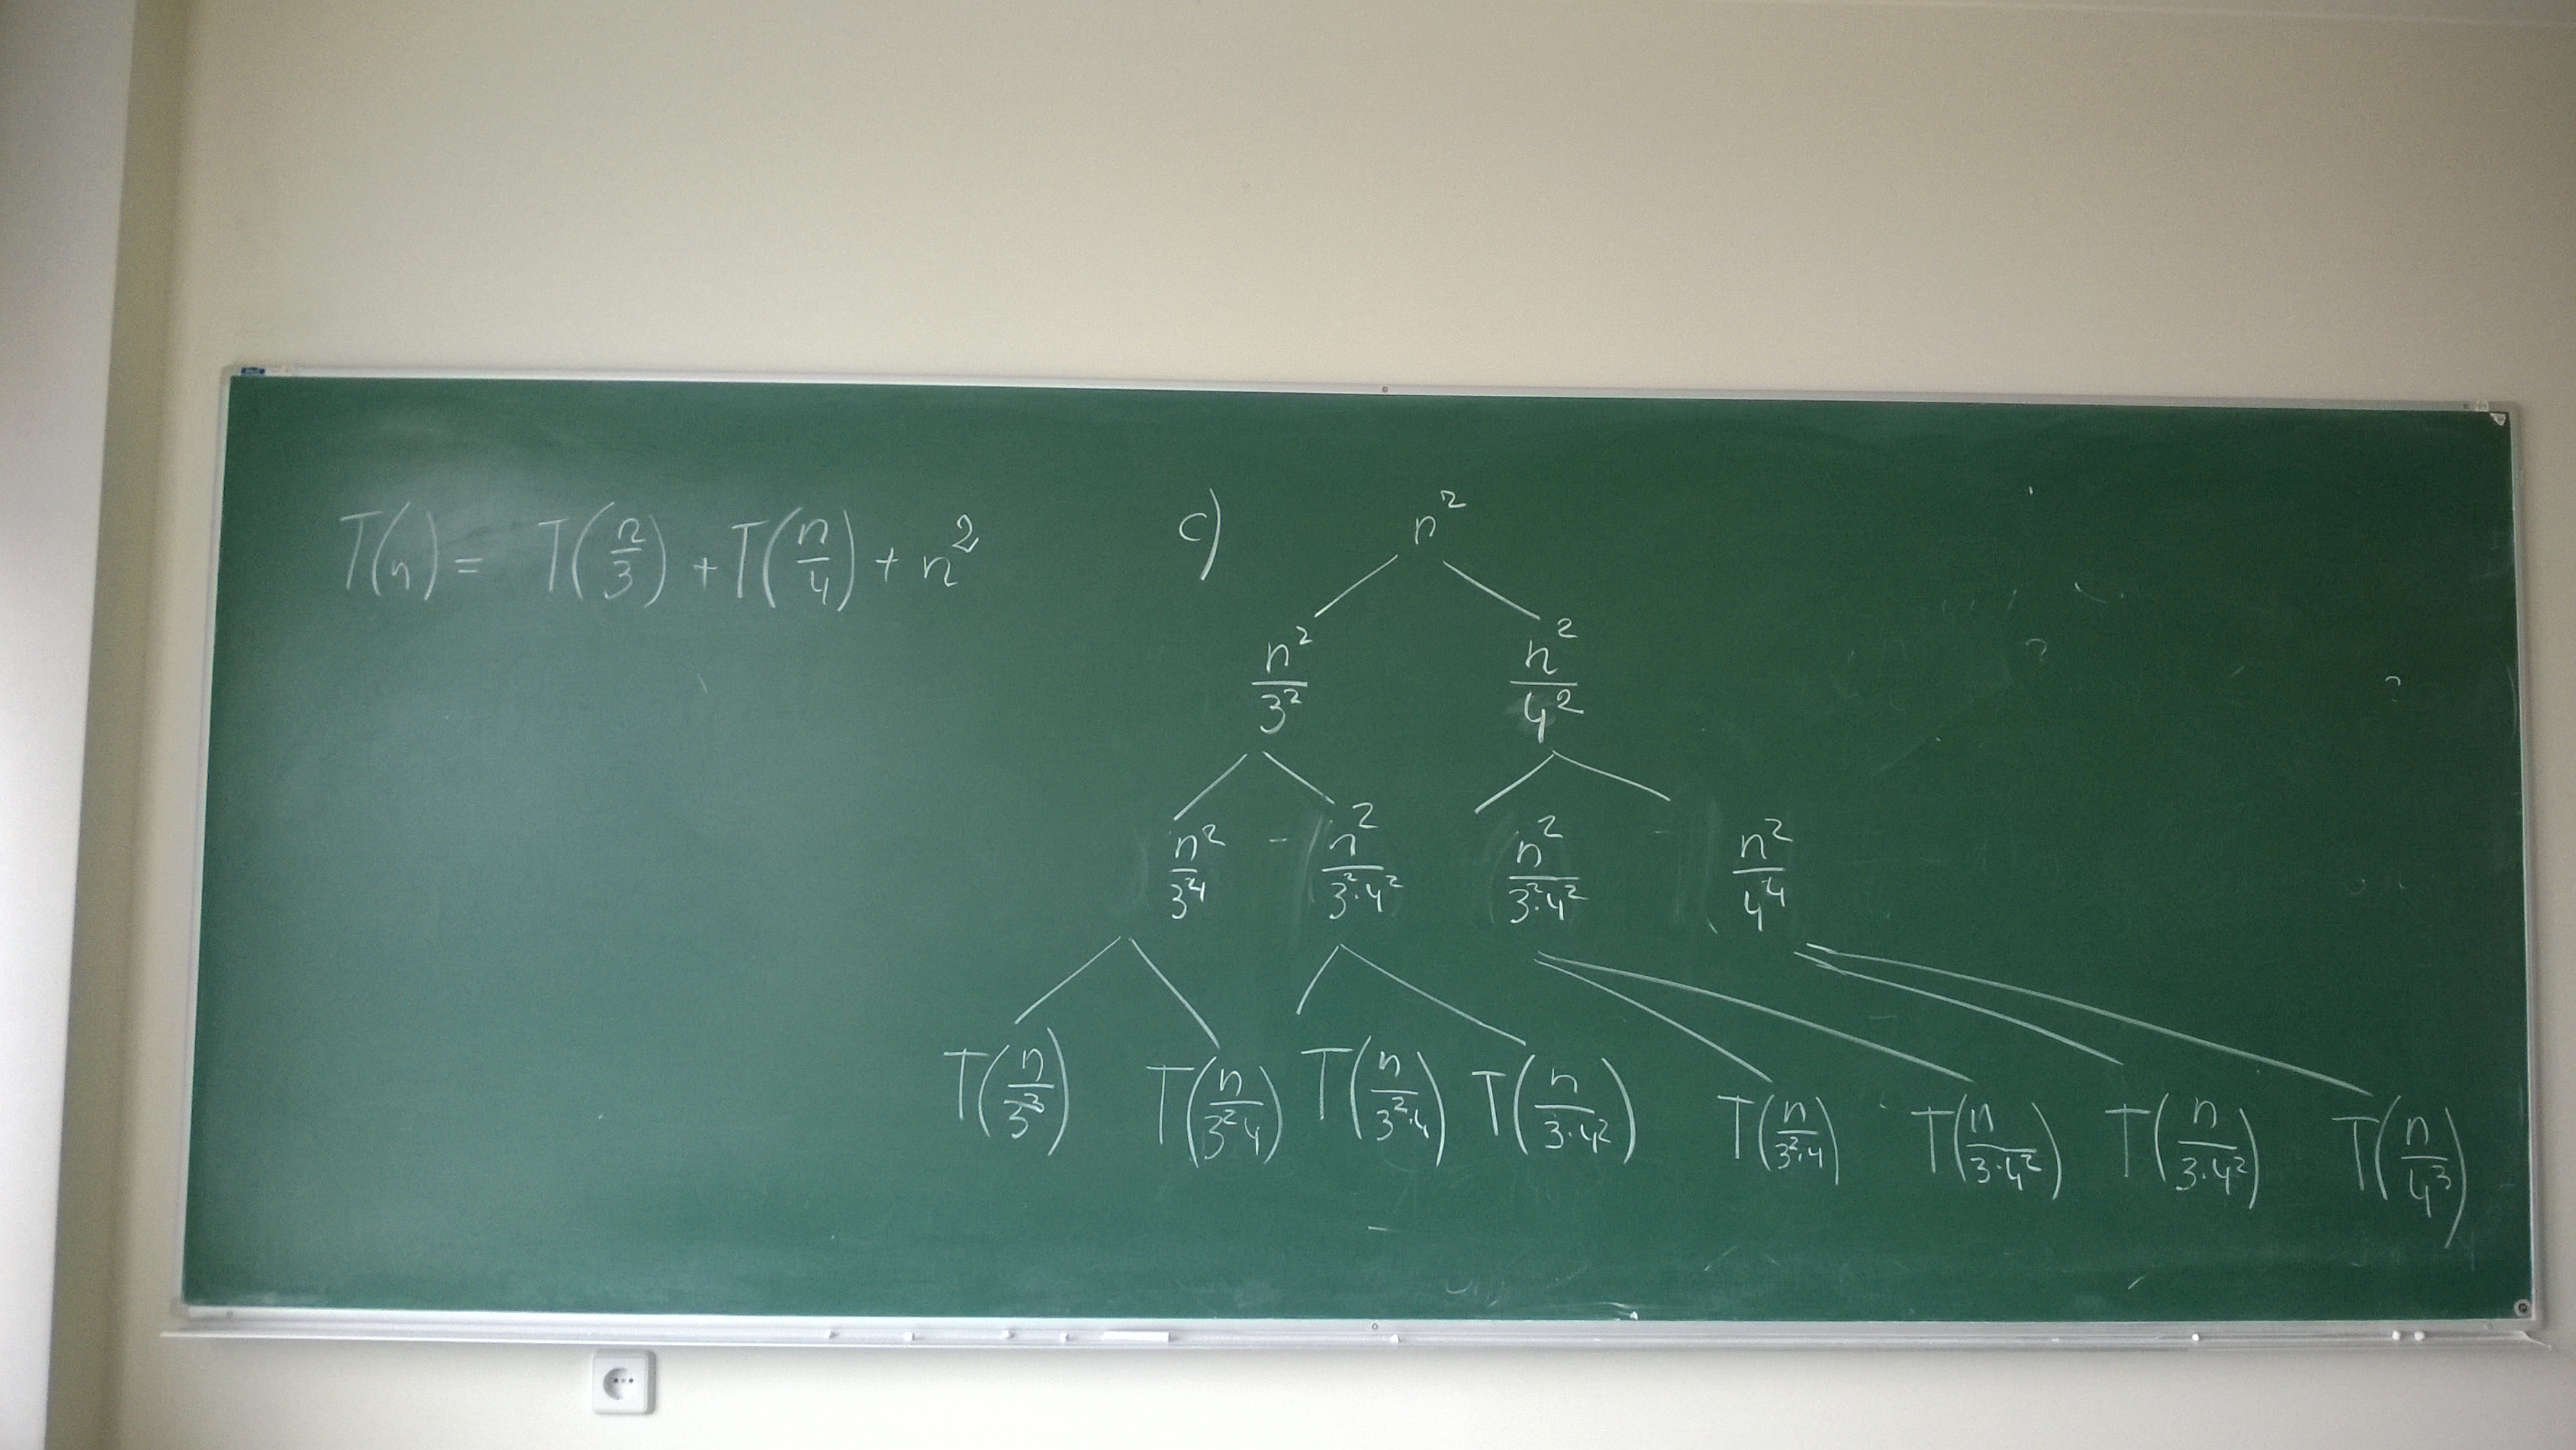 T(n) = T(n/3) + T(n/4) + n²
c) n²
n²/3² n²/4²
n²/3⁴ n²/3²·4² n²/3²·4² n²/4⁴
T(n/3³) T(n/3²4) T(n/3²·4) T(n/3·4²) T(n/3²·4) T(n/3·4²) T(n/3·4²) T(n/4³)